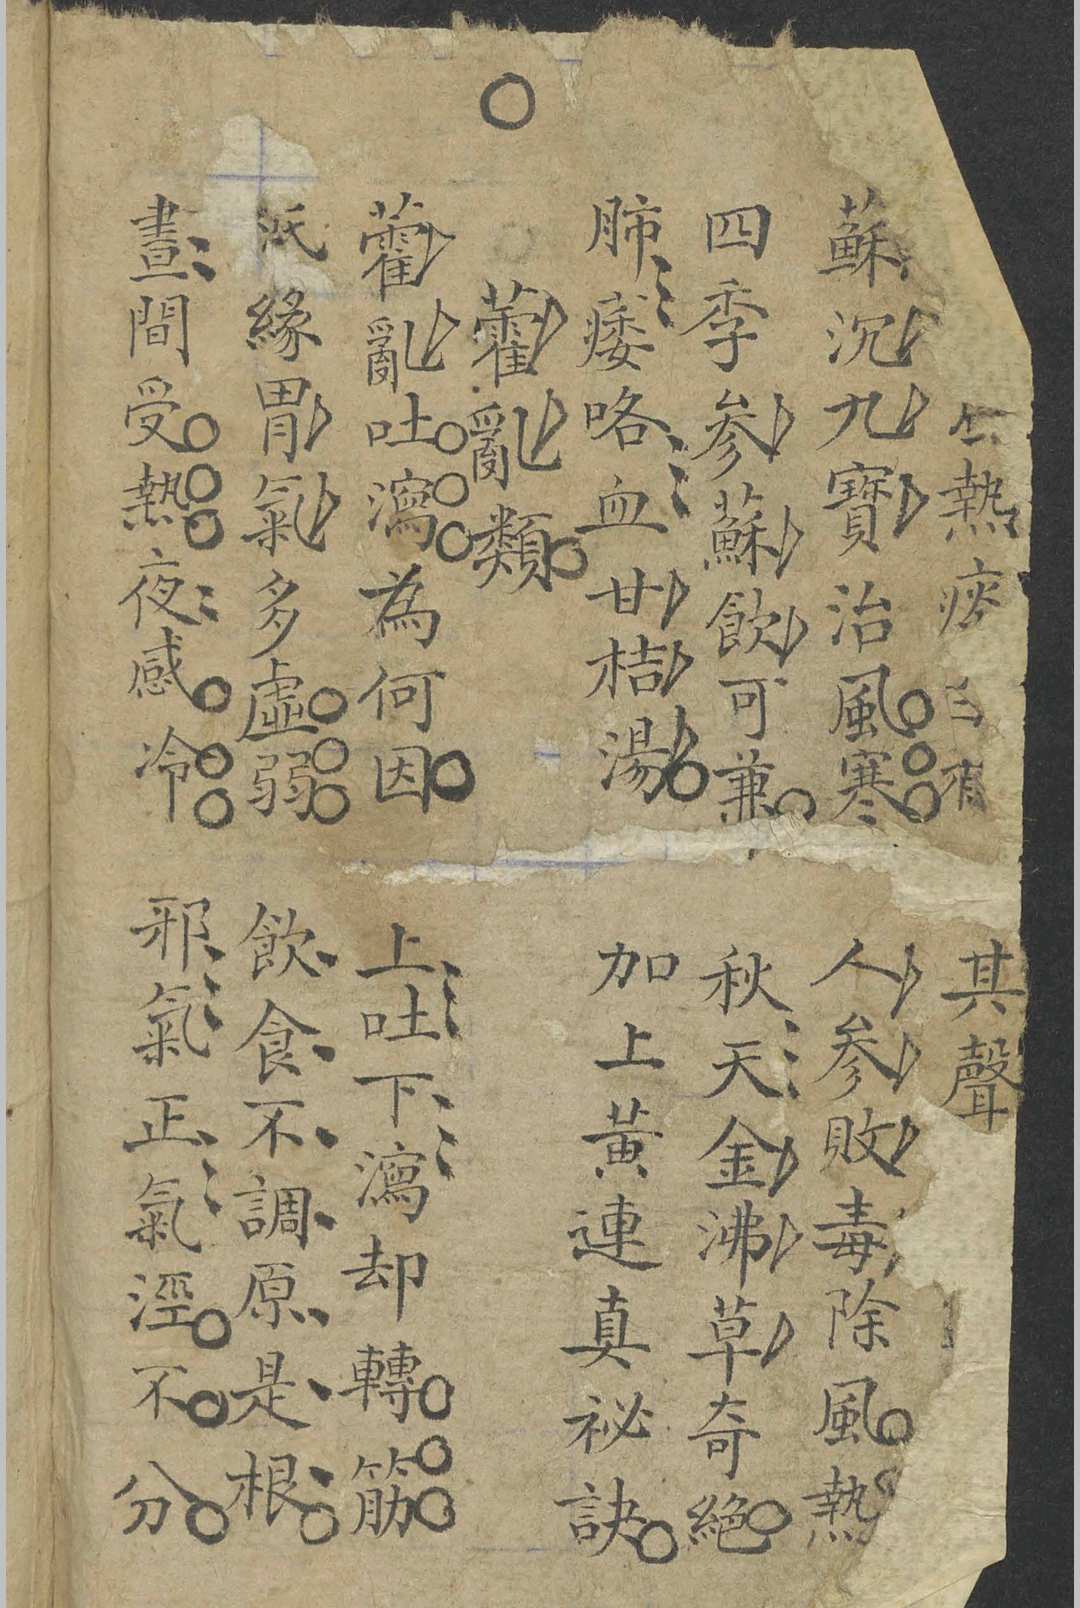 熱痰 其聲
蘇沉九寶治風寒 人參敗毒除風熱
四季參蘇飲可兼 秋天金沸草奇絕
肺痿咯血甘桔湯 加上黃連真祕訣
藿亂類
藿亂吐瀉為何因 上吐下瀉却轉筋
派緣胃氣多虛弱 飲食不調原是根
晝間受熱夜感冷 邪氣正氣淫不分